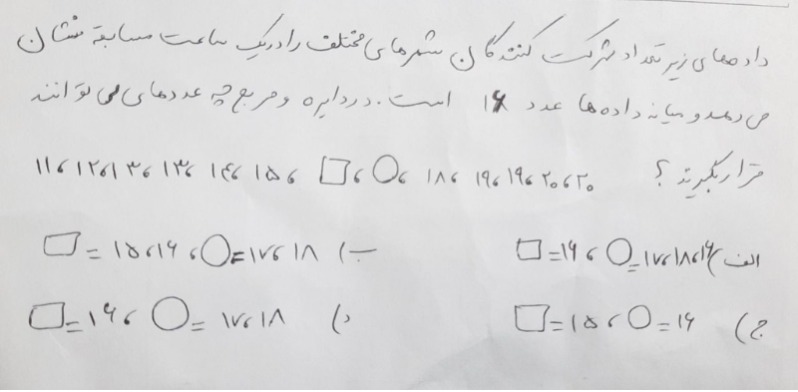 داده‌های زیر تعداد شرکت کنندگان شهرهای مختلف را در یک ساعت مسابقه نشان
می دهد و میانه داده‌ها عدد ۱۶ است. در دایره و مربع چه عددهای می توانند
قرار بگیرند؟ ۱۱، ۱۲، ۱۳، ۱۳، ۱۴، ۱۵، □، ○، ۱۸، ۱۹، ۱۹، ۲۰، ۲۰
الف) □=۱۶، ○=۱۷،۱۸،۱۶ ب) □=۱۵،۱۶، ○=۱۷،۱۸
ج) □=۱۵، ○=۱۶ د) □=۱۶، ○=۱۷،۱۸